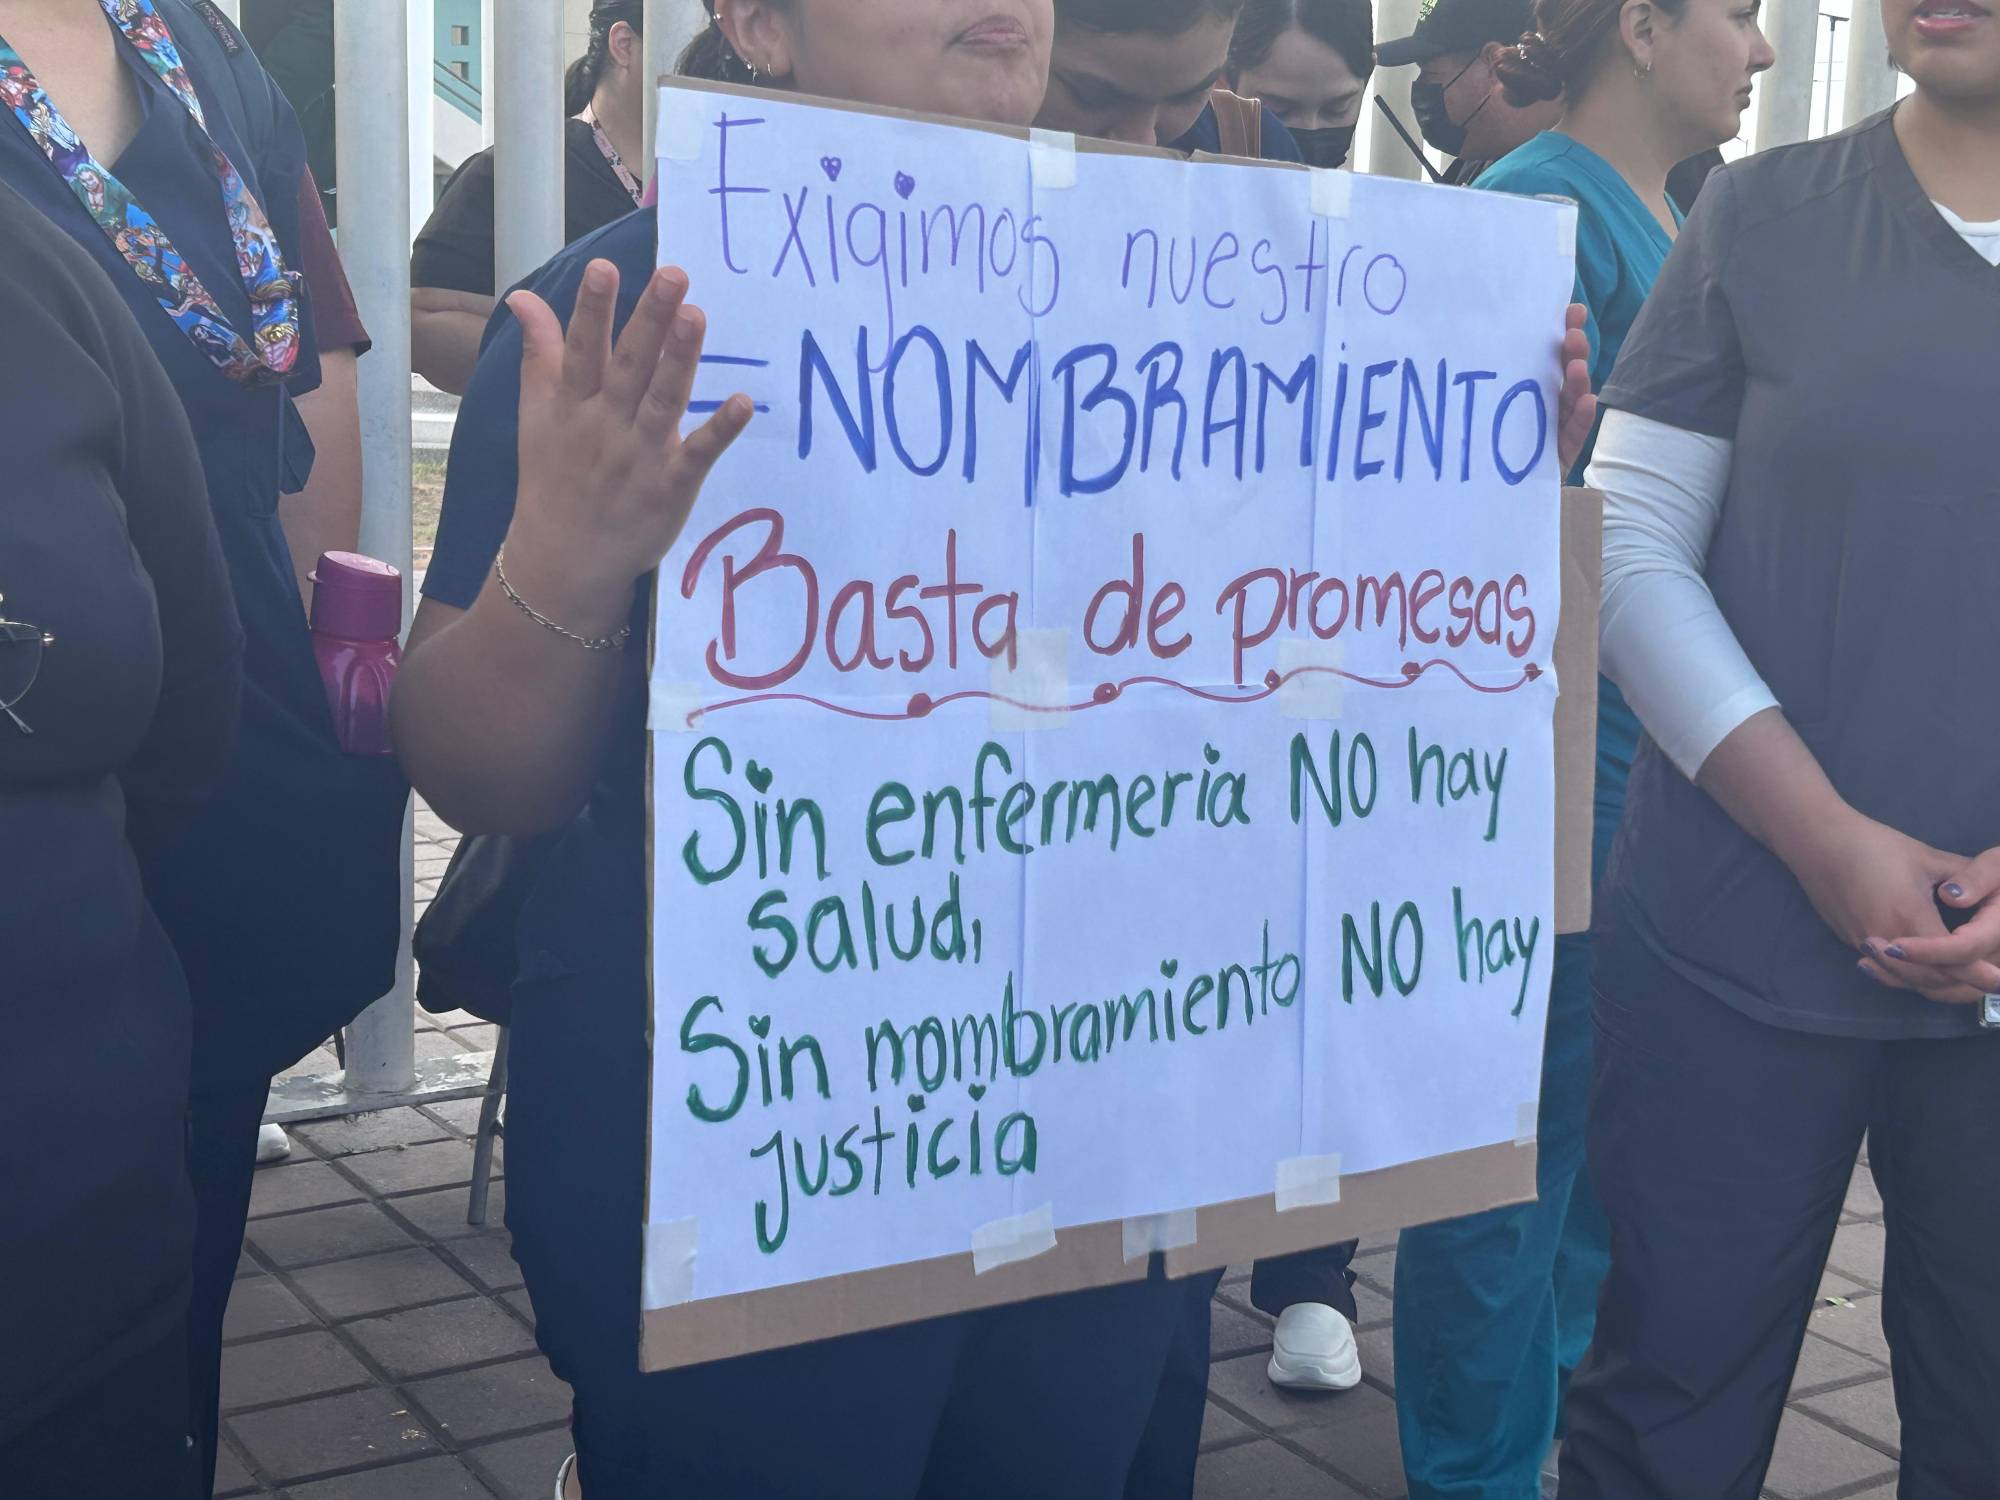 Exigimos nuestro
= NOMBRAMIENTO
Basta de promesas
Sin enfermeria NO hay
salud,
Sin nombramiento NO hay
justicia